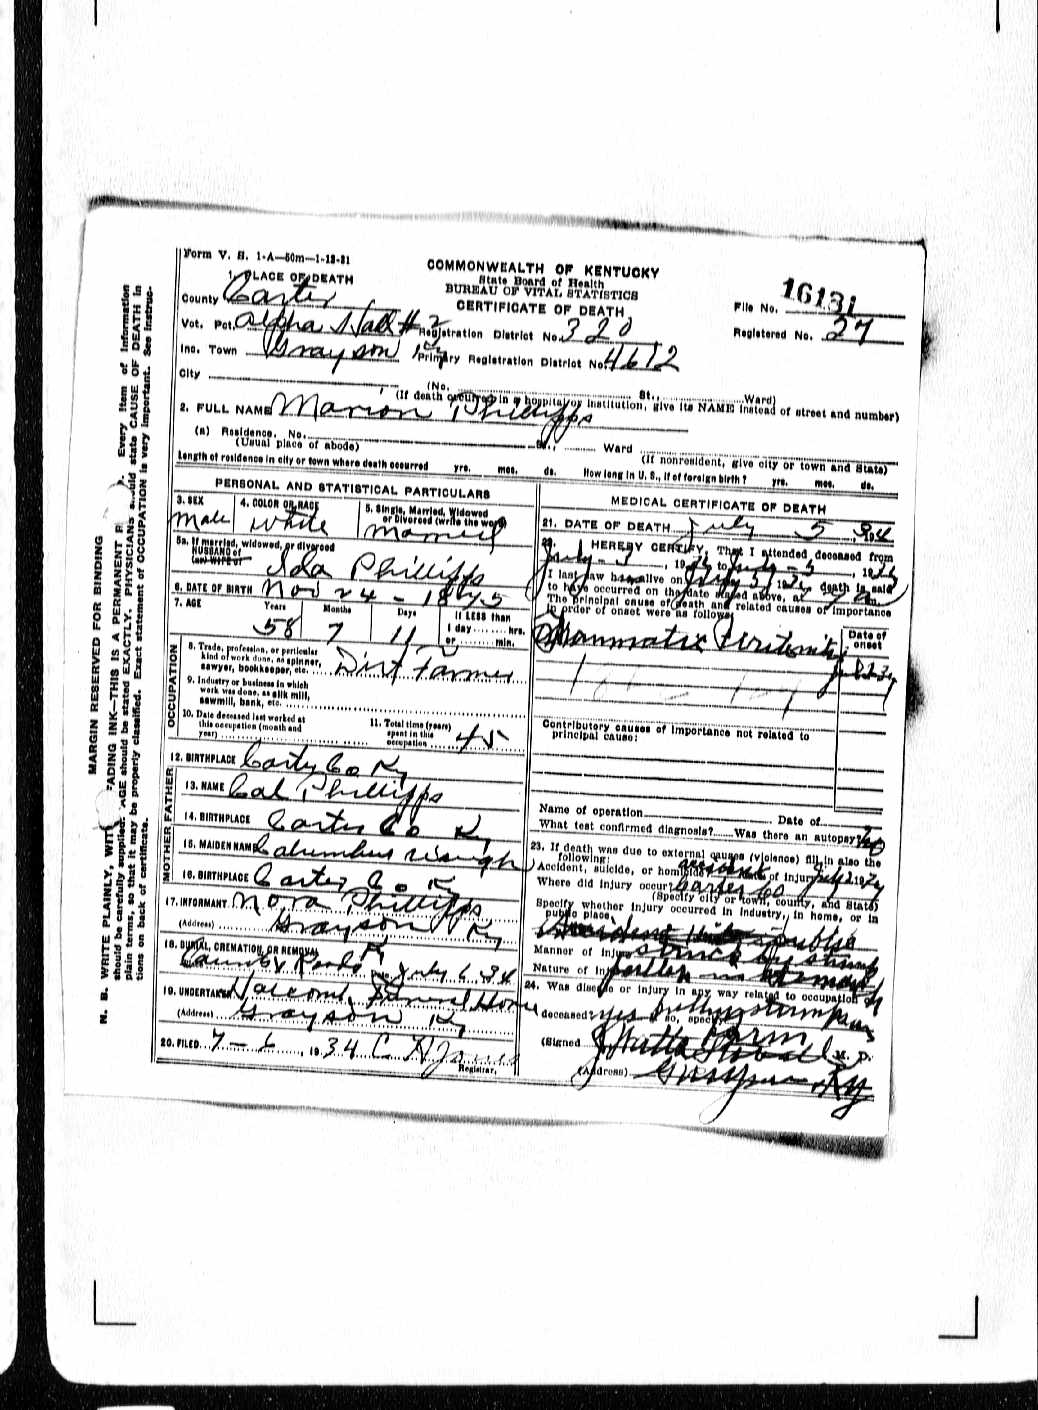 Form V. S. 1-A—50m—1-13-31
COMMONWEALTH OF KENTUCKY
State Board of Health
BUREAU OF VITAL STATISTICS
CERTIFICATE OF DEATH
File No. 16131
Registered No. 27
1. PLACE OF DEATH
County Carter
Vot. Pct. Alpha Hall #2 Registration District No. 320
Inc. Town Grayson Ky Primary Registration District No. 4612
City (No. St., Ward)
(If death occurred in a hospital or institution, give its NAME instead of street and number)
2. FULL NAME Marion Phillipps
(a) Residence. No. St., Ward
(Usual place of abode) (If nonresident, give city or town and State)
Length of residence in city or town where death occurred yrs. mos. ds. How long in U. S., if of foreign birth? yrs. mos. ds.
PERSONAL AND STATISTICAL PARTICULARS
3. SEX Male
4. COLOR OR RACE White
5. Single, Married, Widowed or Divorced (write the word) Married
5a. If married, widowed, or divorced
HUSBAND of
(or) WIFE of Ida Phillipps
6. DATE OF BIRTH Nov 24 - 1875
7. AGE Years 58 Months 7 Days 11 If LESS than 1 day hrs. or min.
OCCUPATION
8. Trade, profession, or particular kind of work done, as spinner, sawyer, bookkeeper, etc. Dirt Farmer
9. Industry or business in which work was done, as silk mill, sawmill, bank, etc.
10. Date deceased last worked at this occupation (month and year)
11. Total time (years) spent in this occupation 45
12. BIRTHPLACE Carter Co Ky
FATHER
13. NAME Cal Phillipps
14. BIRTHPLACE Carter Co Ky
MOTHER
15. MAIDEN NAME Columbus
16. BIRTHPLACE Carter Co Ky
17. INFORMANT Nora Phillipps
(Address) Grayson Ky
18. BURIAL, CREMATION, OR REMOVAL
July 6 34
19. UNDERTAKER Funeral Home
(Address) Grayson Ky
20. FILED 7-6, 1934 C A
Registrar.
MEDICAL CERTIFICATE OF DEATH
21. DATE OF DEATH July 5 34
22. I HEREBY CERTIFY, That I attended deceased from
July 3, 1934 to July 5, 1934
I last saw him alive on July 5, 1934 death is said
to have occurred on the date stated above, at 7 a m.
The principal cause of death and related causes of importance
in order of onset were as follows:
Date of onset
Contributory causes of importance not related to
principal cause:
Name of operation Date of
What test confirmed diagnosis? Was there an autopsy? No
23. If death was due to external causes (violence) fill in also the
following:
Accident, suicide, or homicide? accident Date of injury July 2 1934
Where did injury occur? Carter Co
(Specify city or town, county, and State)
Specify whether injury occurred in industry, in home, or in
public place.
Manner of Injury struck by stump
Nature of Injury
24. Was disease or injury in any way related to occupation of
deceased? yes If so, specify
farm
(Signed M. D.
(Address) Grayson, Ky
MARGIN RESERVED FOR BINDING
N. B. WRITE PLAINLY, WITH FADING INK—THIS IS A PERMANENT Every item of information
should be carefully supplied. AGE should be stated EXACTLY. PHYSICIANS should state CAUSE OF DEATH in
plain terms, so that it may be properly classified. Exact statement of OCCUPATION is very important. See instruc-
tions on back of certificate.